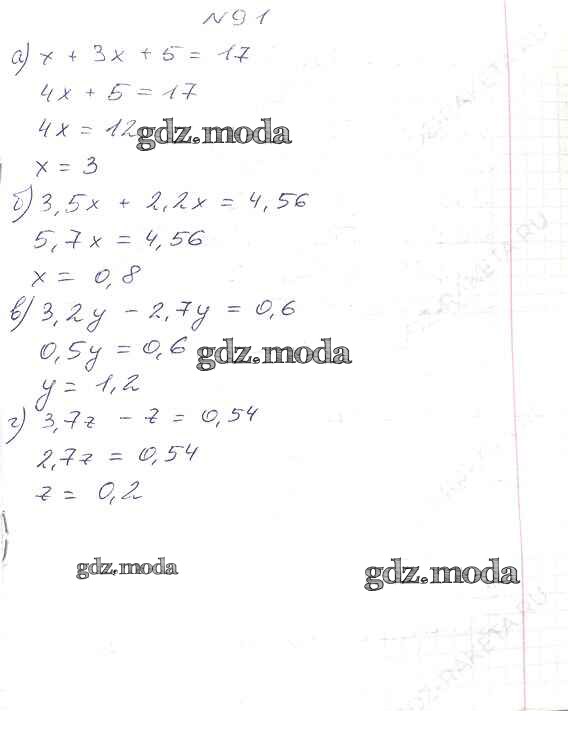 №91
а) x + 3x + 5 = 17
4x + 5 = 17
4x = 12
gdz.moda
x = 3
б) 3,5x + 2,2x = 4,56
5,7x = 4,56
x = 0,8
в) 3,2y - 2,7y = 0,6
0,5y = 0,6
gdz.moda
y = 1,2
г) 3,7z - z = 0,54
2,7z = 0,54
z = 0,2
gdz.moda
gdz.moda
GDZ-RAKETA.RU